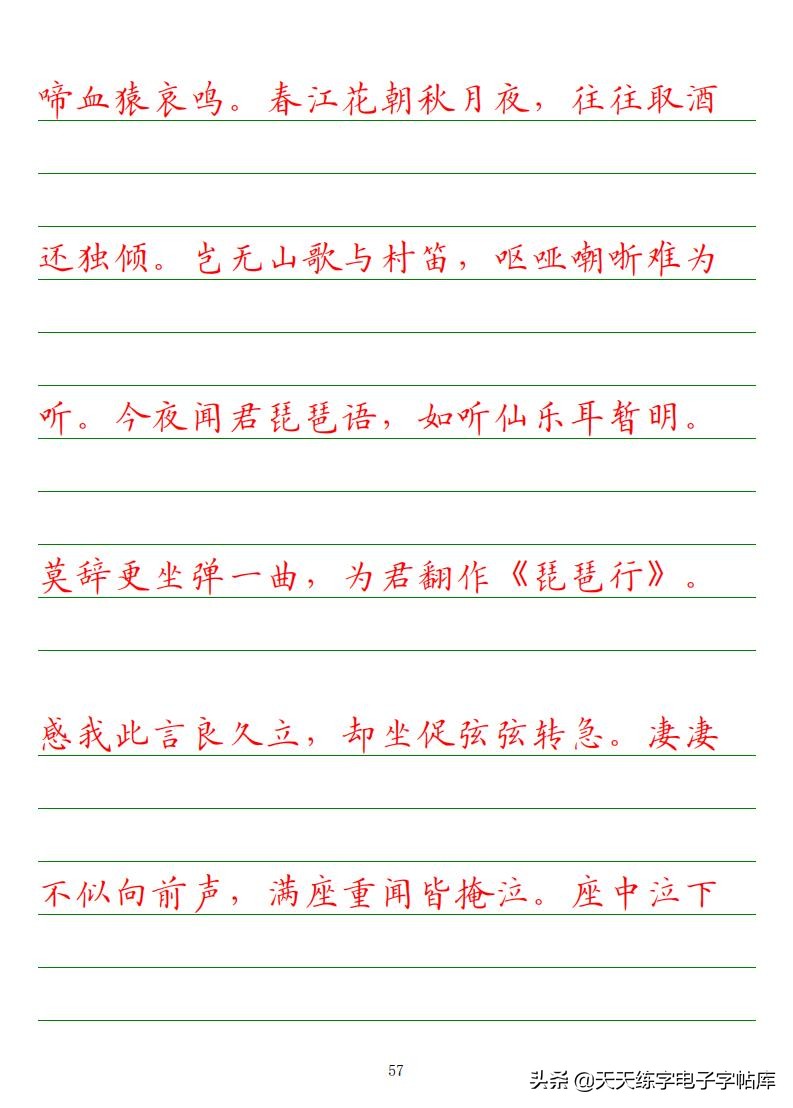 啼血猿哀鸣。春江花朝秋月夜，往往取酒
还独倾。岂无山歌与村笛，呕哑嘲哳难为
听。今夜闻君琵琶语，如听仙乐耳暂明。
莫辞更坐弹一曲，为君翻作《琵琶行》。
感我此言良久立，却坐促弦弦转急。凄凄
不似向前声，满座重闻皆掩泣。座中泣下
57
头条 @天天练字电子字帖库